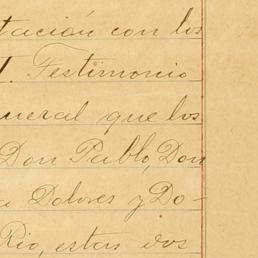 tación con los
T. Testimonio
neral que los
Don Pablo, Don
a Dolores y Do-
Rio, estas dos